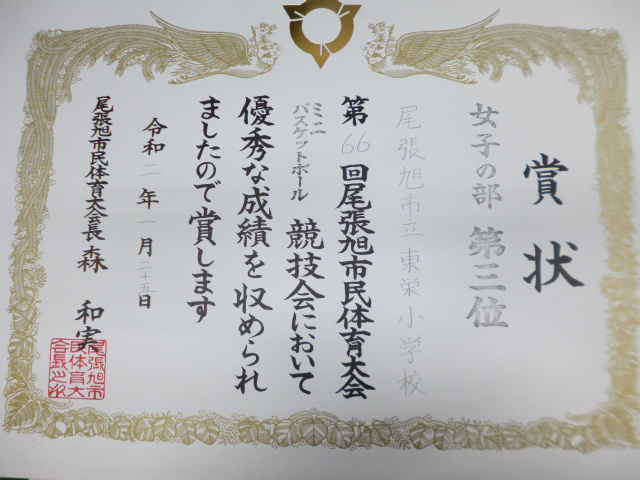 賞状
女子の部 第三位
尾張旭市立東栄小学校
第66回尾張旭市民体育大会
ミニバスケットボール競技会において
優秀な成績を収められ
ましたので賞します
令和二年一月二十五日
尾張旭市民体育大会長 森 和実
尾張旭市
民体育大
会長之印